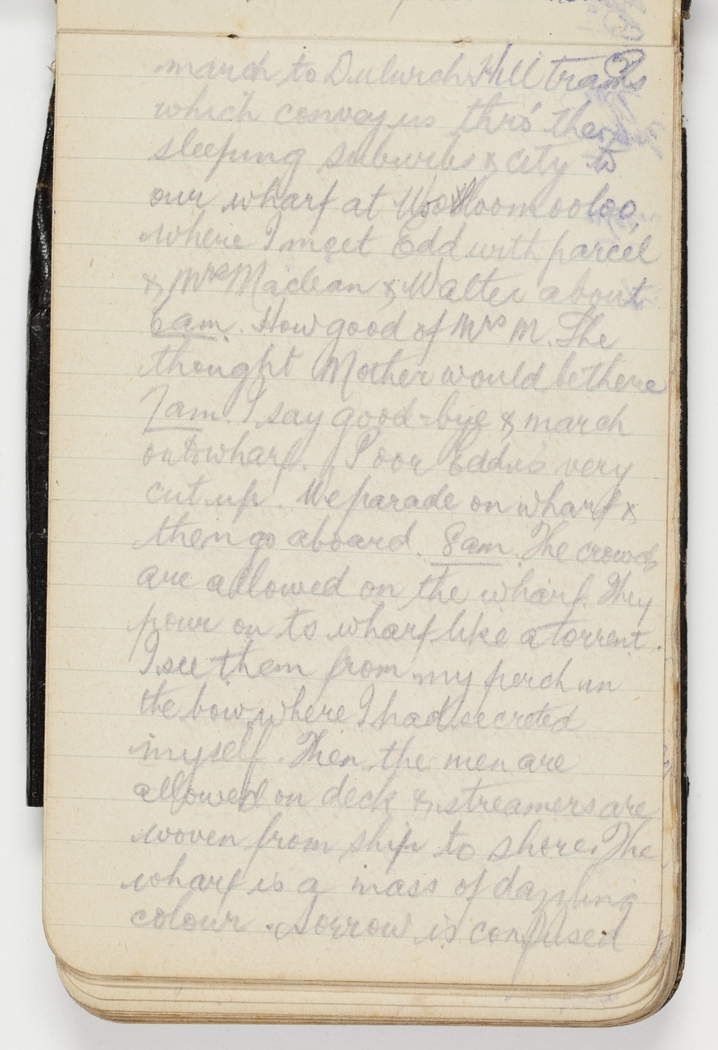 march to Dulwich Hill trams
which convey us thro' the
sleeping suburbs & city to
our wharf at Woolloomooloo,
where I meet Edd with parcel
& Mrs Maclean & Walter about
6am. How good of Mrs M. She
thought Mother would be there
7am. I say good-bye & march
on to wharf. Poor Edd is very
cut up. We parade on wharf &
then go aboard. 8am. The crowds
are allowed on the wharf. They
pour on to wharf like a torrent.
I see them from my perch in
the bow where I had secreted
myself. Then the men are
allowed on deck & streamers are
woven from ship to shore. The
wharf is a mass of dazzling
colour. Sorrow is confused